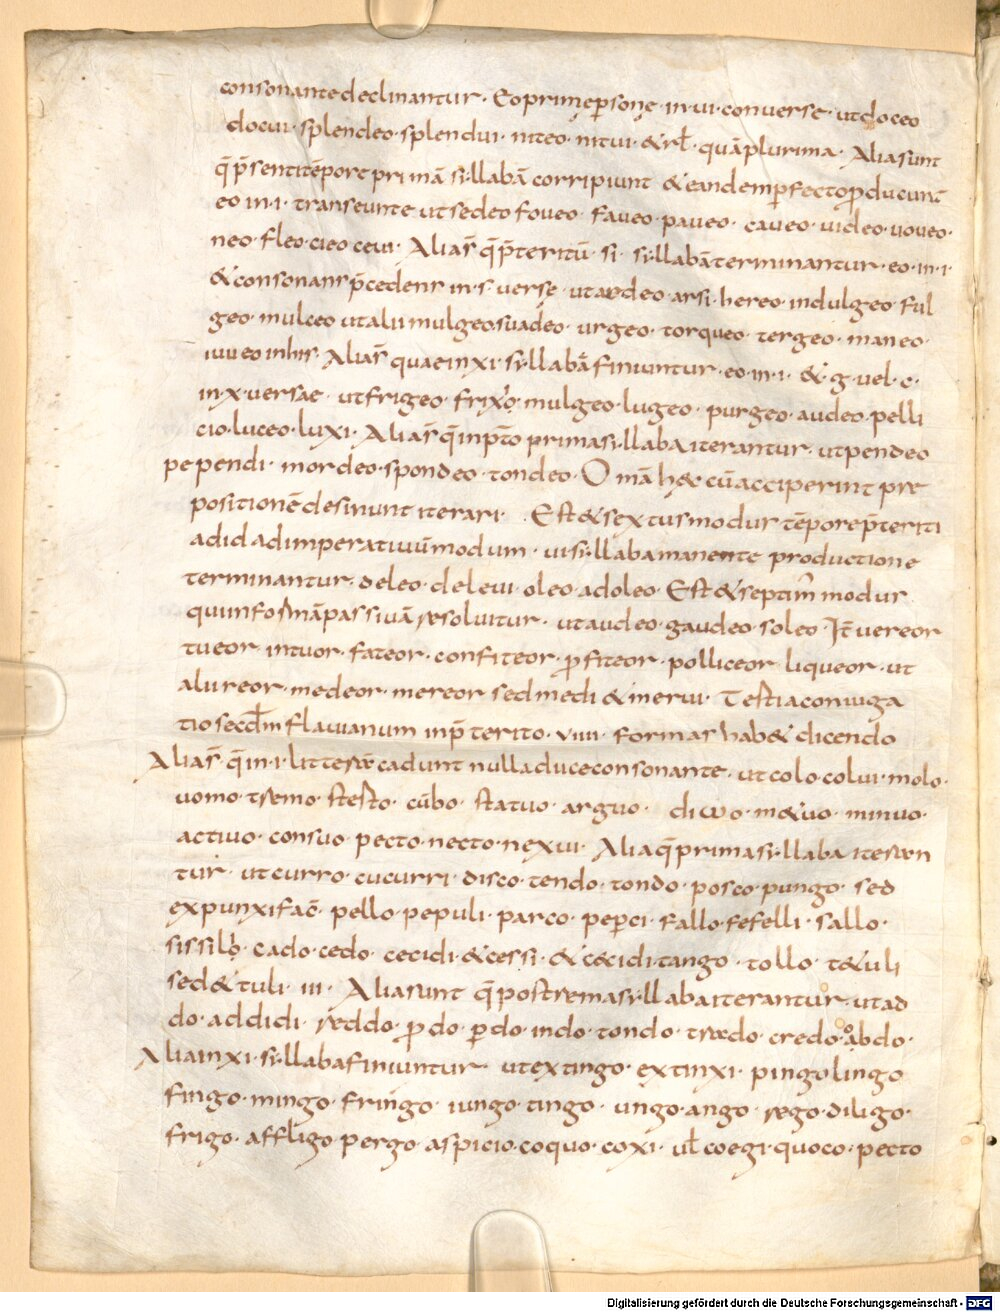 consonante declinantur · Eo primę psonę · in · ui · converse · ut doceo
docui · splendeo · splendui · niteo · nitui · & rł · quā plurima · Alia sunt
q̄ p̄senti tēpore primā sillabā corripiunt & eandem pfecto pducunt
eo in · i · transeunte ut sedeo foveo · faveo · paveo · caveo · uideo · uoveo ·
neo · fleo · cieo ceui · Alia s̄ q̄ p̄teritū · si · sillabā terminantur · eo · in · i ·
& consonans p̄cedens in · s · versę · ut ardeo · arsi · hereo · indulgeo · ful
geo · mulceo ut alii mulgeo suadeo · urgeo · torqueo · tergeo · maneo ·
iuueo in his · Alia s̄ quae in xi · sillabā finiuntur · eo · in · i · & · g · uel · c ·
in · x · versae · ut frigeo · frixo · mulgeo · lugeo · purgeo · audeo · pelli
cio · luceo · luxi · Alia s̄ q̄ in p̄to prima sillaba iterantur · ut pendeo
pependi · mordeo · spondeo · tondeo · O mā hęc cū acciperint pre
positionē desinunt iterari · Est & sextus modus tēpore p̄teriti
ad id ad imperativū modum · ui sillaba manente productione
terminantur · deleo · delevi · oleo · adoleo · Est & septim modus
qui in formā passivā resolvitur · ut audeo · gaudeo · soleo · It̄ vereor
tueor · intuor · fateor · confiteor · pfiteor · polliceor · liqueor · ut
alii reor · medeor · mereor sed medi & merui · Testia coniuga
tio secdm flavianum in p̄terito · viiii · formas hab& dicendo
Alia s̄ q̄ in · i · litteram cadunt nulla duce consonante · ut colo · colui · molo ·
uomo · tremo · stesto · cūbo · statuo · arguo · diωo · m&uo · minuo ·
activo · consuo · pecto · necto · nexui · Alia q̄ prima sillaba iteran
tur · ut curro · cucurri · disco · tendo · tondo · posco · pungo · sed
expunxi fac̄ · pello · pepuli · parco · peperci · fallo · fefelli · sallo ·
sissilo · cado · cedo · cecidi · & cessi · & cecidi · tango · tollo · t&uli
sed & tuli · iii · Alia sunt q̄ postrema sillaba iterantur · ut ad
do · addidi · reddo · pdo · pdo · indo · tondo · traedo · credo · abdo ·
Alia in xi · sillaba finiuntur · ut extingo · extinxi · pingo lingo
fingo · mingo · fringo · iungo · tingo · ungo · ango · rego · diligo ·
frigo · affligo · pergo · aspicio · coquo · coxi · uł coegi · quoco · pecto
Digitalisierung gefördert durch die Deutsche Forschungsgemeinschaft - DFG